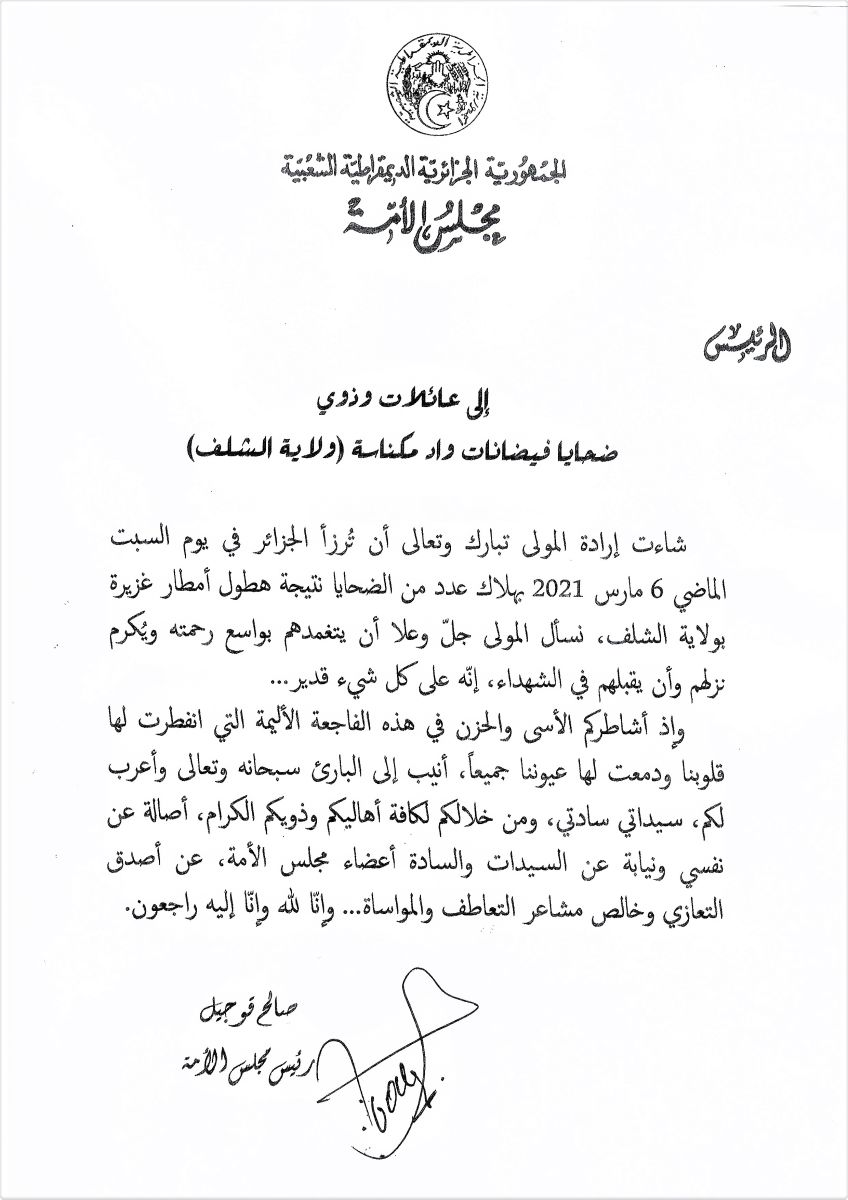 الجمهورية الجزائرية الديمقراطية الشعبية
الجمهُوريّة الجزائريّة الديمقراطيّة الشعْبيّة
مجْلسُ الأمّة
الرئيس
إلى عائلات وذوي
ضحايا فيضانات واد مكناسة (ولاية الشلف)
شاءت إرادة المولى تبارك وتعالى أن تُرزأ الجزائر في يوم السبت
الماضي 6 مارس 2021 بهلاك عدد من الضحايا نتيجة هطول أمطار غزيرة
بولاية الشلف، نسأل المولى جلّ وعلا أن يتغمدهم بواسع رحمته ويُكرم
نزلهم وأن يقبلهم في الشهداء، إنّه على كل شيء قدير...
وإذ أشاطركم الأسى والحزن في هذه الفاجعة الأليمة التي انفطرت لها
قلوبنا ودمعت لها عيوننا جميعاً، أنيب إلى البارئ سبحانه وتعالى وأعرب
لكم، سيداتي سادتي، ومن خلالكم لكافة أهاليكم وذويكم الكرام، أصالة عن
نفسي ونيابة عن السيدات والسادة أعضاء مجلس الأمة، عن أصدق
التعازي وخالص مشاعر التعاطف والمواساة... وإنّا لله وإنّا إليه راجعون.
صالح قوجيل
رئيس مجلس الأمة